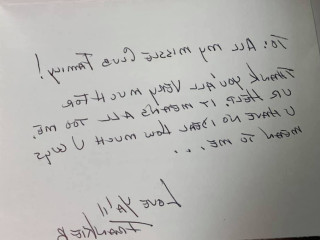 To: All my missle Club Family!
Thank you All Very much for
ur Help. it means All too me.
U Have no ideal how much U guys
mean to me...
Love Ya!!!
Frankie R